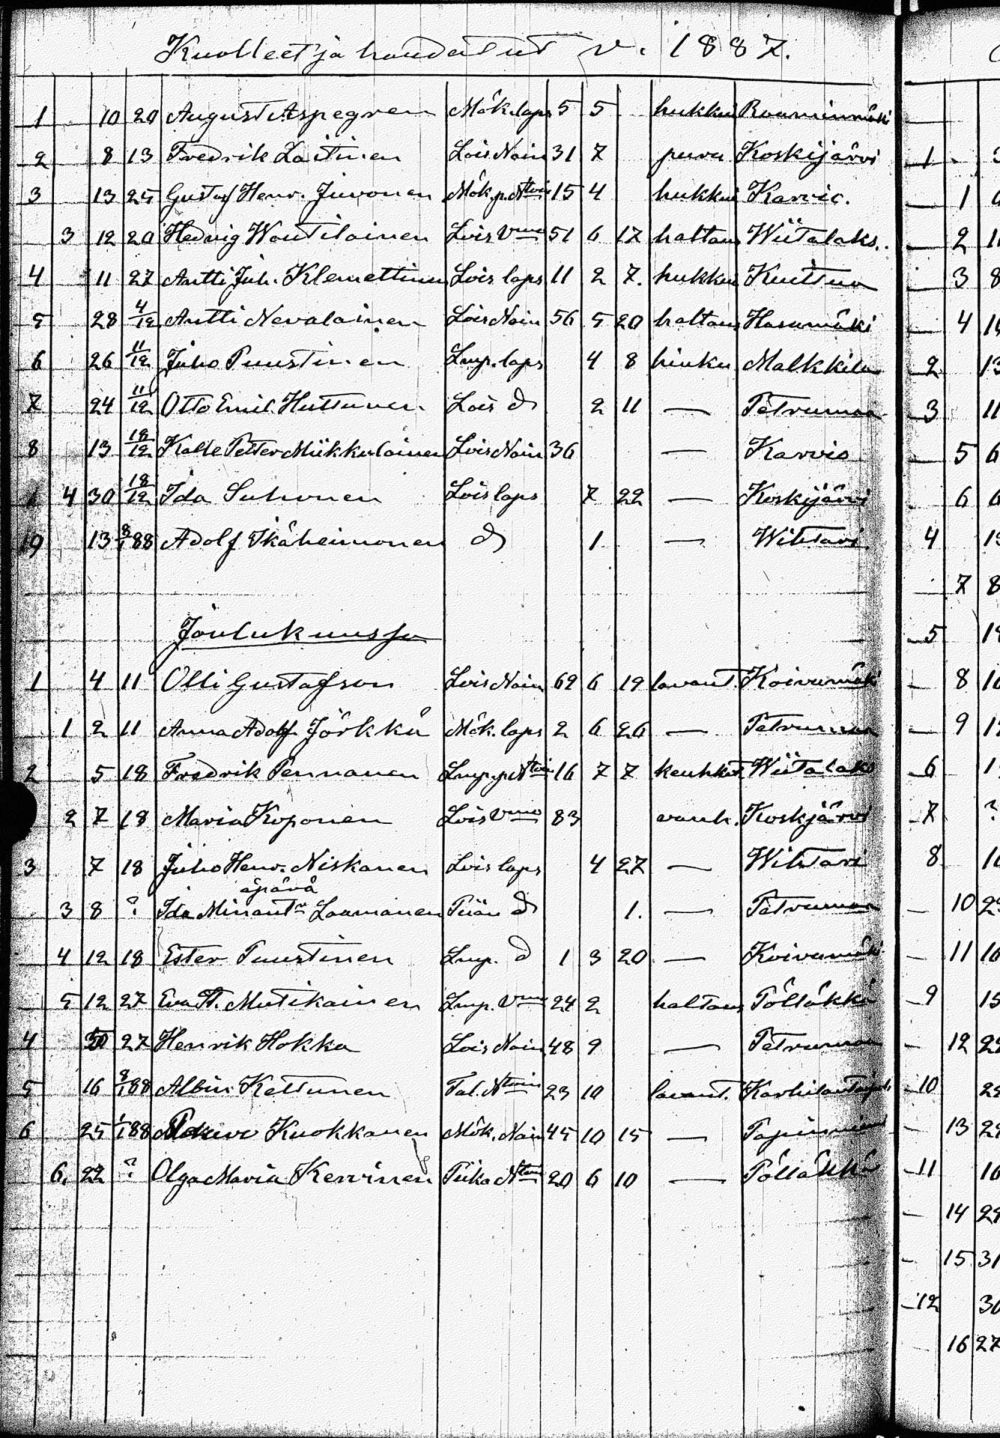 Kuolleet ja haudatut v. 1887.
1 10 20 August Aspegren Mök.laps 5 5 hukkui
2 8 13 Fredrik Laitinen Lois Nain 31 7 Koskijärvi
3 13 25 Gustaf Henr. Juvonen Mök.p. 15 4 hukkui Karvio.
3 12 20 Hedvig Woutilainen Lois Vmo 51 6 17 haltaus Wiitalaks.
4 11 27 Antti Juh. Klemettinen Lois laps 11 2 7. hukkui Kuittua
5 28 4/12 Antti Nevalainen Lois Nain 56 5 20 haltaus Hasumäki
6 26 11/12 Juho Puustinen Lmp. laps 4 8 hinku Malkkila
7 24 11/12 Otto Emil Huttunen Lois d 2 11 — Petrumaa
8 13 18/12 Kalle Petter Miikkulainen Lois Nain 36 — Karvio
4 30 18/12 Ida Suhonen Lois laps 7 22 — Koskijärvi
19 13 8/1 88 Adolf Ikäheimonen d 1 — Wihtari
Joulukuussa
1 4 11 Olli Gustafson Lois Nain 69 6 19 lavant Koivumäki
1 2 11 Anna Adolf. Jörkkä Mök. laps 2 6 26 — Petrumaa
2 5 18 Fredrik Pennanen Lmp.p. 16 7 7 keuhkot. Wiitalaks
2 7 18 Maria Koponen Lois Vmo 83 vanh. Koskjärvi
3 7 18 Juho Henr. Niskanen Lois laps 4 27 — Wihtari
äpärä
3 8 ? Ida Minan Laamanen Piian d 1. — Petrumaa
4 12 18 Ester Puustinen Lmp. d 1 3 20 — Koivumäki
5 12 27 Eva St. Mutikainen Lmp. Vmo 24 2 haltaus Pölläkkä
4 27 Henrik Hokka Lois Nain 48 9 — Petrumaa
5 16 8/1 88 Albin Kettunen Tal. 23 10 lavant.
6 25 1/1 88 Kuokkanen Mök. Nain 45 10 15 —
6. 22 ? Olga Maria Kervinen Piika 20 6 10 — Pölläkkä
1
1
2 11
3 8
4
2 13
3 11
5 6
6 6
4
7 8
5
8
9
6
7 ?
8
10
11 10
9 15
12
10
13
11 16
14
15 31
12
16 27